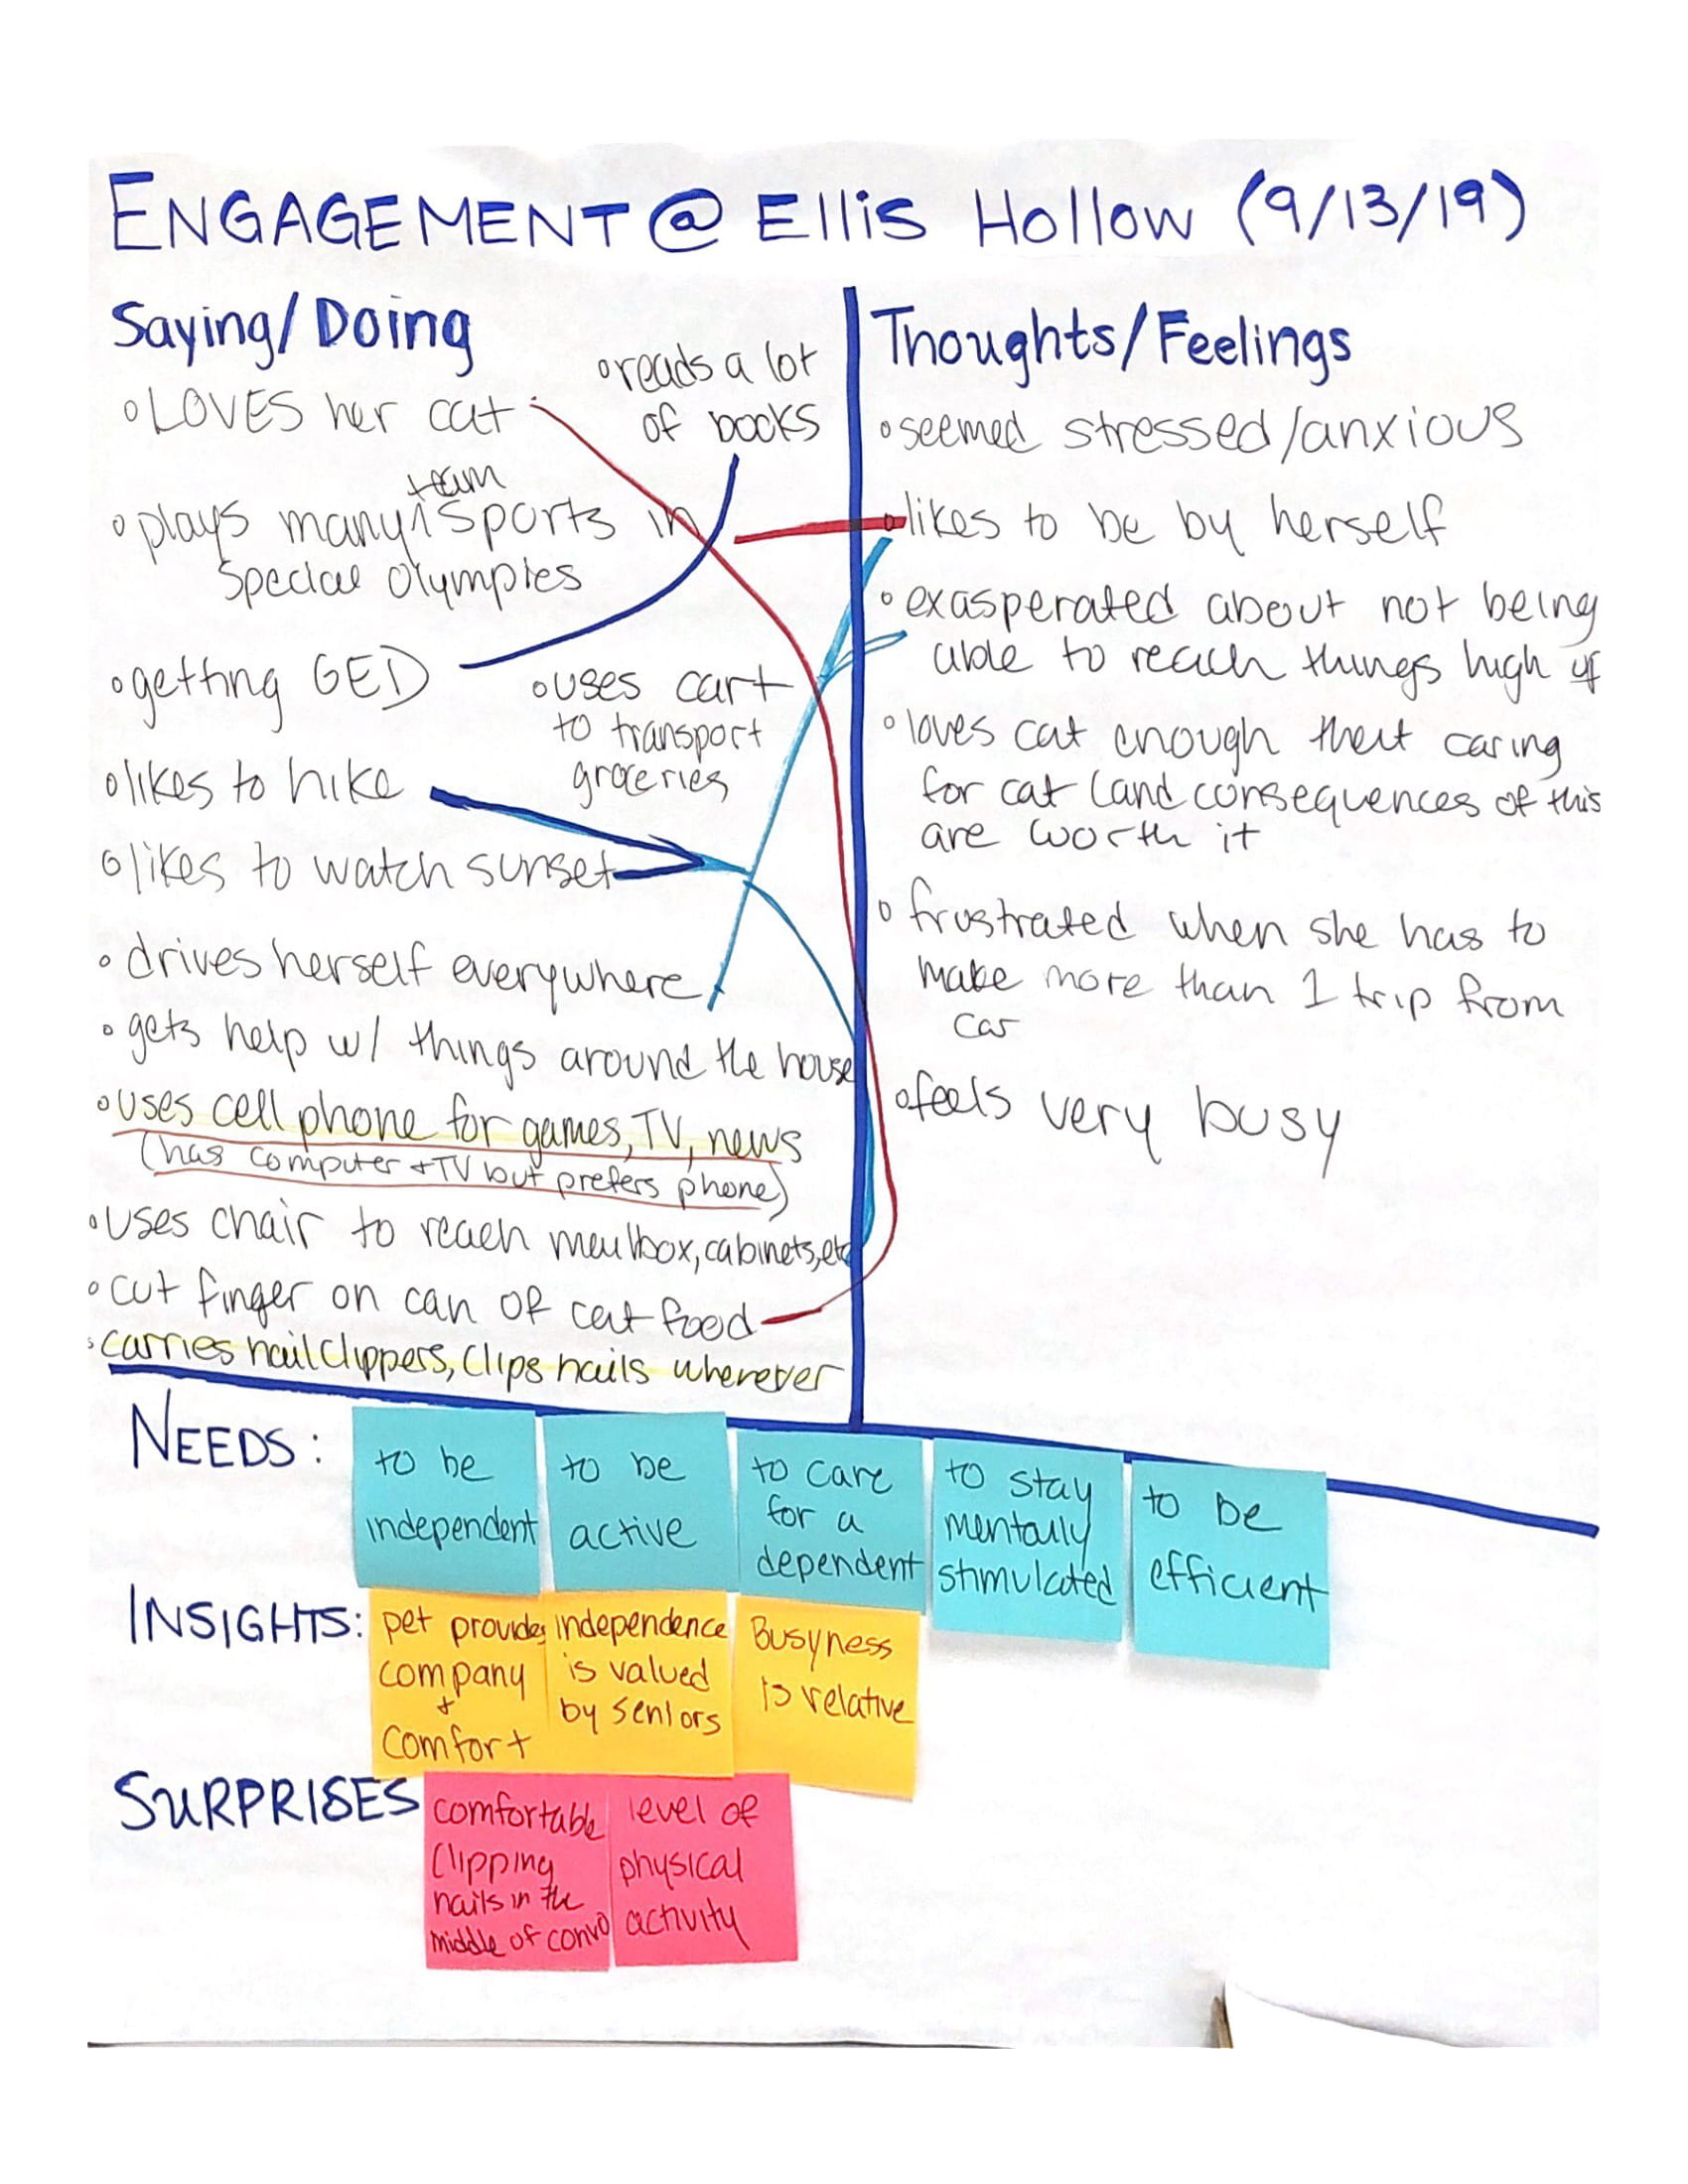 ENGAGEMENT @ Ellis Hollow (9/13/19)
Saying/Doing
○ LOVES her cat
○ reads a lot
of books
team
○ plays many ^ sports in
Special Olympics
○ getting GED
○ uses cart
to transport
groceries
○ likes to hike
○ likes to watch sunset
○ drives herself everywhere
○ gets help w/ things around the house
○ uses cell phone for games, TV, news
(has computer + TV but prefers phone)
○ uses chair to reach mailbox, cabinets, etc
○ cut finger on can of cat food
○ carries nail clippers, clips nails wherever
Thoughts/Feelings
○ seemed stressed/anxious
○ likes to be by herself
○ exasperated about not being
able to reach things high up
○ loves cat enough that caring
for cat (and consequences of this
are worth it
○ frustrated when she has to
make more than 1 trip from
car
○ feels very busy
NEEDS:
to be
independent
to be
active
to care
for a
dependent
to stay
mentally
stimulated
to be
efficient
INSIGHTS:
pet provides
company
+
comfort
independence
is valued
by seniors
Busyness
is relative
SURPRISES
comfortable
clipping
nails in the
middle of convo
level of
physical
activity